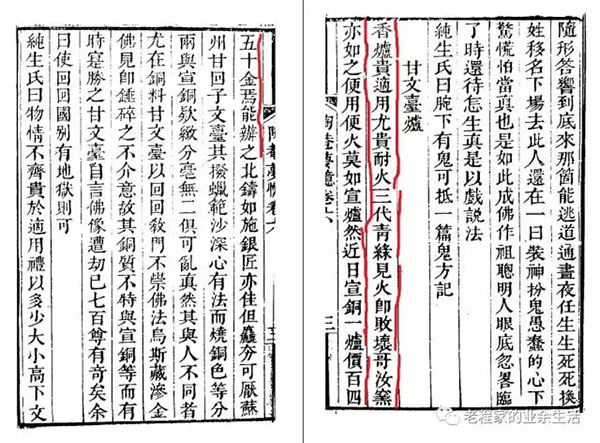 隨形答響到底來那箇能逃道通晝夜任生生死死換
姓移名下場去此人還在一曰裝神扮鬼愚蠢的心下
驚慌怕當眞也是如此成佛作祖聰明人眼底忽畧臨
了時還待怎生眞是以戲說法
純生氏曰腕下有鬼可抵一篇鬼方記
甘文臺爐
香爐貴適用尤貴耐火三代青綠見火卽敗壞哥汝窯
亦如之便用便火莫如宣爐然近日宣銅一爐價百四
陶菴夢憶卷六
陶菴夢憶卷六
五十金焉能辦之北鑄如施銀匠亦佳但麤夯可厭蘇
州甘回子文臺其撥蠟範沙深心有法而燒銅色等分
兩與宣銅欵緻分毫無二俱可亂眞然其與人不同者
尤在銅料甘文臺以回回敎門不崇佛法烏斯藏滲金
佛見卽錘碎之不介意故其銅質不特與宣銅等而有
時寔勝之甘文臺自言佛像遭劫已七百尊有奇矣余
曰使回回國別有地獄則可
純生氏曰物情不齊貴於適用禮以多少大小高下文
老程家的业余生活